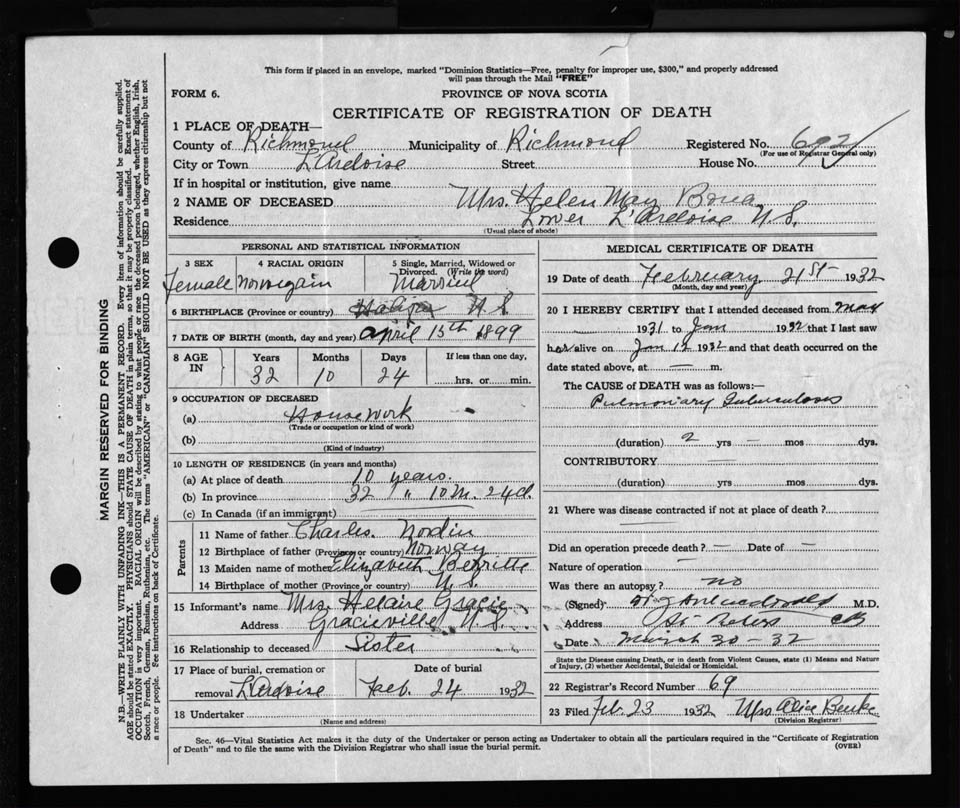 This form if placed in an envelope, marked "Dominion Statistics—Free, penalty for improper use, $300," and properly addressed
will pass through the Mail "FREE"
FORM 6.
PROVINCE OF NOVA SCOTIA
CERTIFICATE OF REGISTRATION OF DEATH
1 PLACE OF DEATH—
County of Richmond Municipality of Richmond Registered No. 692
(For use of Registrar General only)
City or Town L'Ardoise Street House No.
If in hospital or institution, give name
2 NAME OF DECEASED Mrs. Helen May Bona
Residence Lower L'Ardoise N.S.
(Usual place of abode)
PERSONAL AND STATISTICAL INFORMATION
3 SEX 4 RACIAL ORIGIN 5 Single, Married, Widowed or
Divorced. (Write the word)
Female Norwegain Married
6 BIRTHPLACE (Province or country) Halifax N.S.
7 DATE OF BIRTH (month, day and year) April 15th 1899
8 AGE IN Years Months Days If less than one day,
32 10 24 hrs. or min.
9 OCCUPATION OF DECEASED
(a) Housework
(Trade or occupation or kind of work)
(b)
(Kind of industry)
10 LENGTH OF RESIDENCE (in years and months)
(a) At place of death 10 years.
(b) In province 32 " 10 M. 24 d.
(c) In Canada (if an immigrant)
Parents
11 Name of father Charles. Nordin
12 Birthplace of father (Province or country) Norway
13 Maiden name of mother Elizabeth
14 Birthplace of mother (Province or country) N.S.
15 Informant's name Mrs. Helaire Gracie
Address Gracieville N.S.
16 Relationship to deceased Sister
17 Place of burial, cremation or Date of burial
removal L'Ardoise Feb. 24 1932
18 Undertaker
(Name and address)
MEDICAL CERTIFICATE OF DEATH
19 Date of death February. 21st 1932
(Month, day and year)
20 I HEREBY CERTIFY that I attended deceased from May
1931 to Jan 1932 that I last saw
her alive on Jan 12 1932 and that death occurred on the
date stated above, at — m.
The CAUSE of DEATH was as follows:—
Pulmoniary Tuberculoses
(duration) 2 yrs — mos dys.
CONTRIBUTORY
(duration) yrs. mos. dys.
21 Where was disease contracted if not at place of death?
Did an operation precede death? — Date of —
Nature of operation —
Was there an autopsy? no
(Signed) M.D.
Address St. Peters CB
Date March 30 - 32
State the Disease causing Death, or in death from Violent Causes, state (1) Means and Nature
of Injury, (2) whether Accidental, Suicidal or Homicidal.
22 Registrar's Record Number 69
23 Filed Feb. 23 1932 Mrs Alice
(Division Registrar)
Sec. 46—Vital Statistics Act makes it the duty of the Undertaker or person acting as Undertaker to obtain all the particulars required in the "Certificate of Registration
of Death" and to file the same with the Division Registrar who shall issue the burial permit.
(OVER)
MARGIN RESERVED FOR BINDING
N.B.—WRITE PLAINLY WITH UNFADING INK—THIS IS A PERMANENT RECORD. Every item of information should be carefully supplied.
AGE should be stated EXACTLY. PHYSICIANS should STATE CAUSE OF DEATH in plain terms, so that it may be properly classified. Exact statement of
OCCUPATION is very important. RACIAL ORIGIN will be described by stating to what people or race the deceased person belonged, whether English, Irish,
Scotch, French, German, Russian, Ruthenian, etc. The terms "AMERICAN" or "CANADIAN" SHOULD NOT BE USED as they express citizenship but not
a race or people. See instructions on back of Certificate.